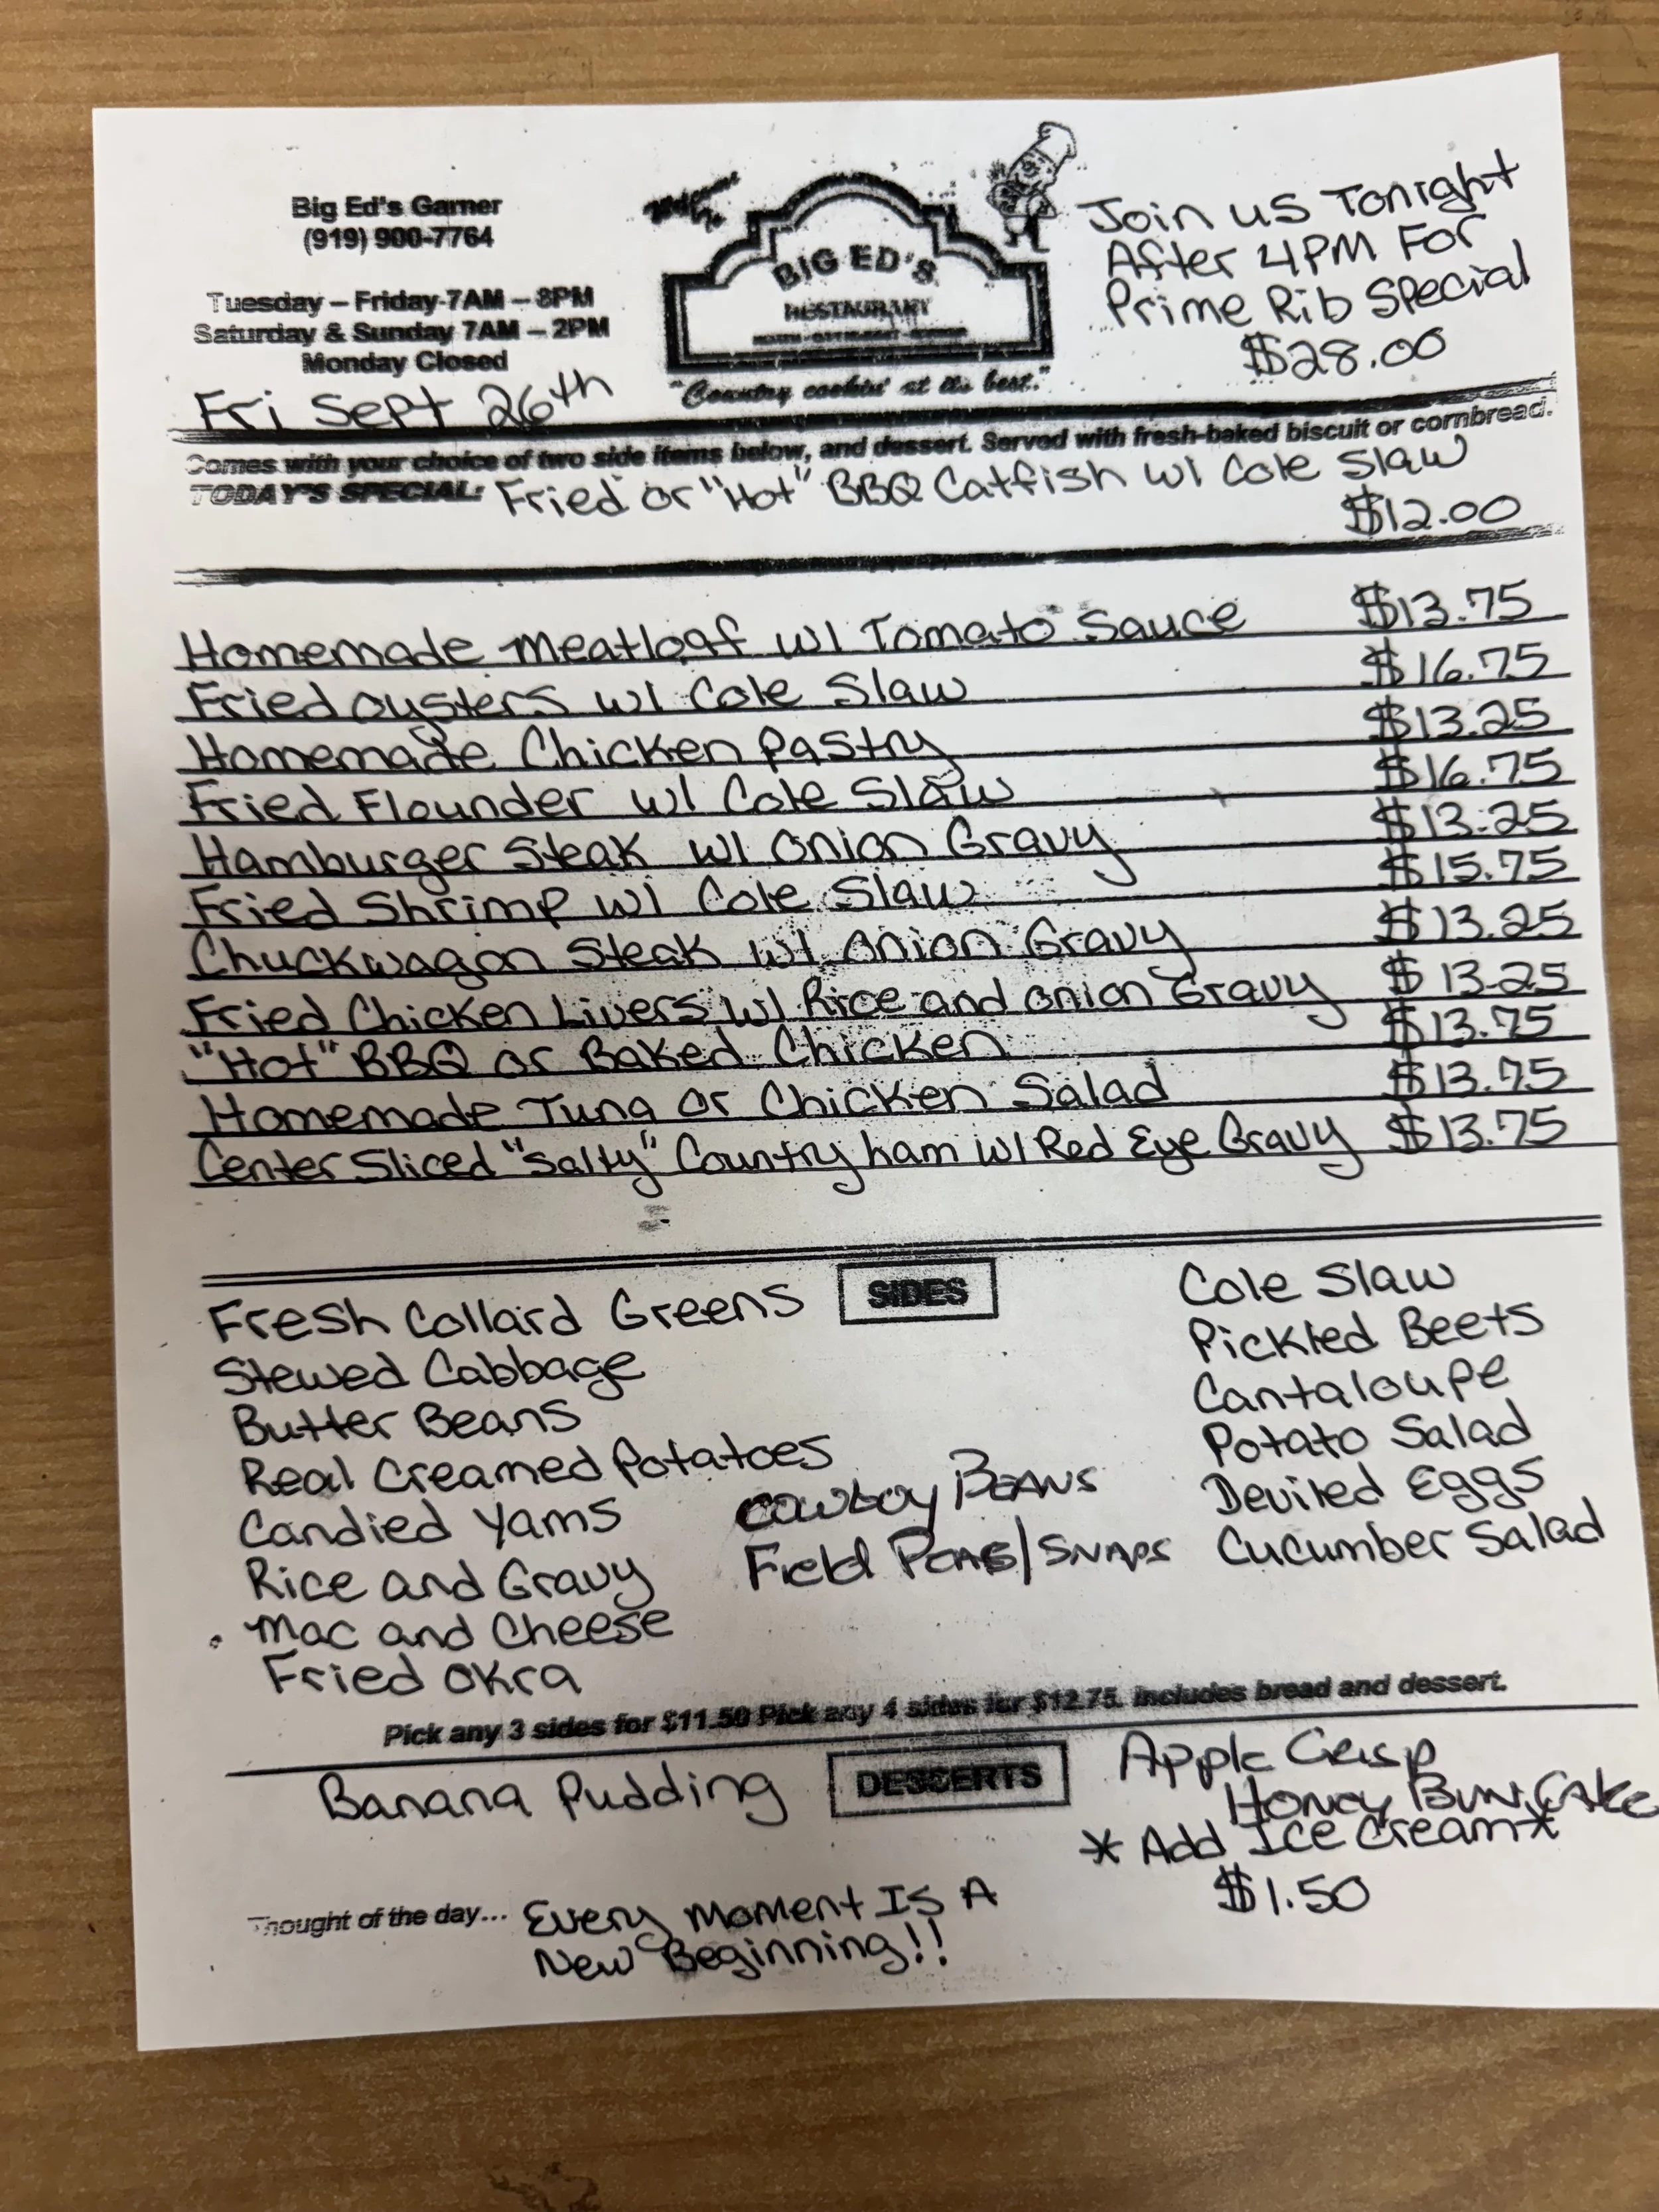 Big Ed's Garner
(919) 900-7764
Tuesday – Friday-7AM – 8PM
Saturday & Sunday 7AM – 2PM
Monday Closed
Fri Sept 26th
BIG ED'S
RESTAURANT
"Country cookin' at its best."
Join us Tonight
After 4PM For
Prime Rib Special
$28.00
Comes with your choice of two side items below, and dessert. Served with fresh-baked biscuit or cornbread.
TODAY'S SPECIAL: Fried or "Hot" BBQ Catfish w/ Cole Slaw
$12.00
Homemade Meatloaf w/ Tomato Sauce $13.75
Fried Oysters w/ Cole Slaw $16.75
Homemade Chicken Pastry $13.25
Fried Flounder w/ Cole Slaw $16.75
Hamburger Steak w/ Onion Gravy $13.25
Fried Shrimp w/ Cole Slaw $15.75
Chuckwagon Steak w/ Onion Gravy $13.25
Fried Chicken Livers w/ Rice and Onion Gravy $13.25
"Hot" BBQ or Baked Chicken $13.75
Homemade Tuna or Chicken Salad $13.75
Center Sliced "Salty" Country ham w/ Red Eye Gravy $13.75
SIDES
Fresh Collard Greens
Stewed Cabbage
Butter Beans
Real Creamed Potatoes
Candied Yams
Rice and Gravy
Mac and Cheese
Fried Okra
Cowboy Beans
Field Peas/Snaps
Cole Slaw
Pickled Beets
Cantaloupe
Potato Salad
Deviled Eggs
Cucumber Salad
Pick any 3 sides for $11.50 Pick any 4 sides for $12.75. Includes bread and dessert.
DESSERTS
Banana Pudding
Apple Crisp
Honey Bun Cake
* Add Ice Cream*
$1.50
Thought of the day... Every Moment Is A
New Beginning!!